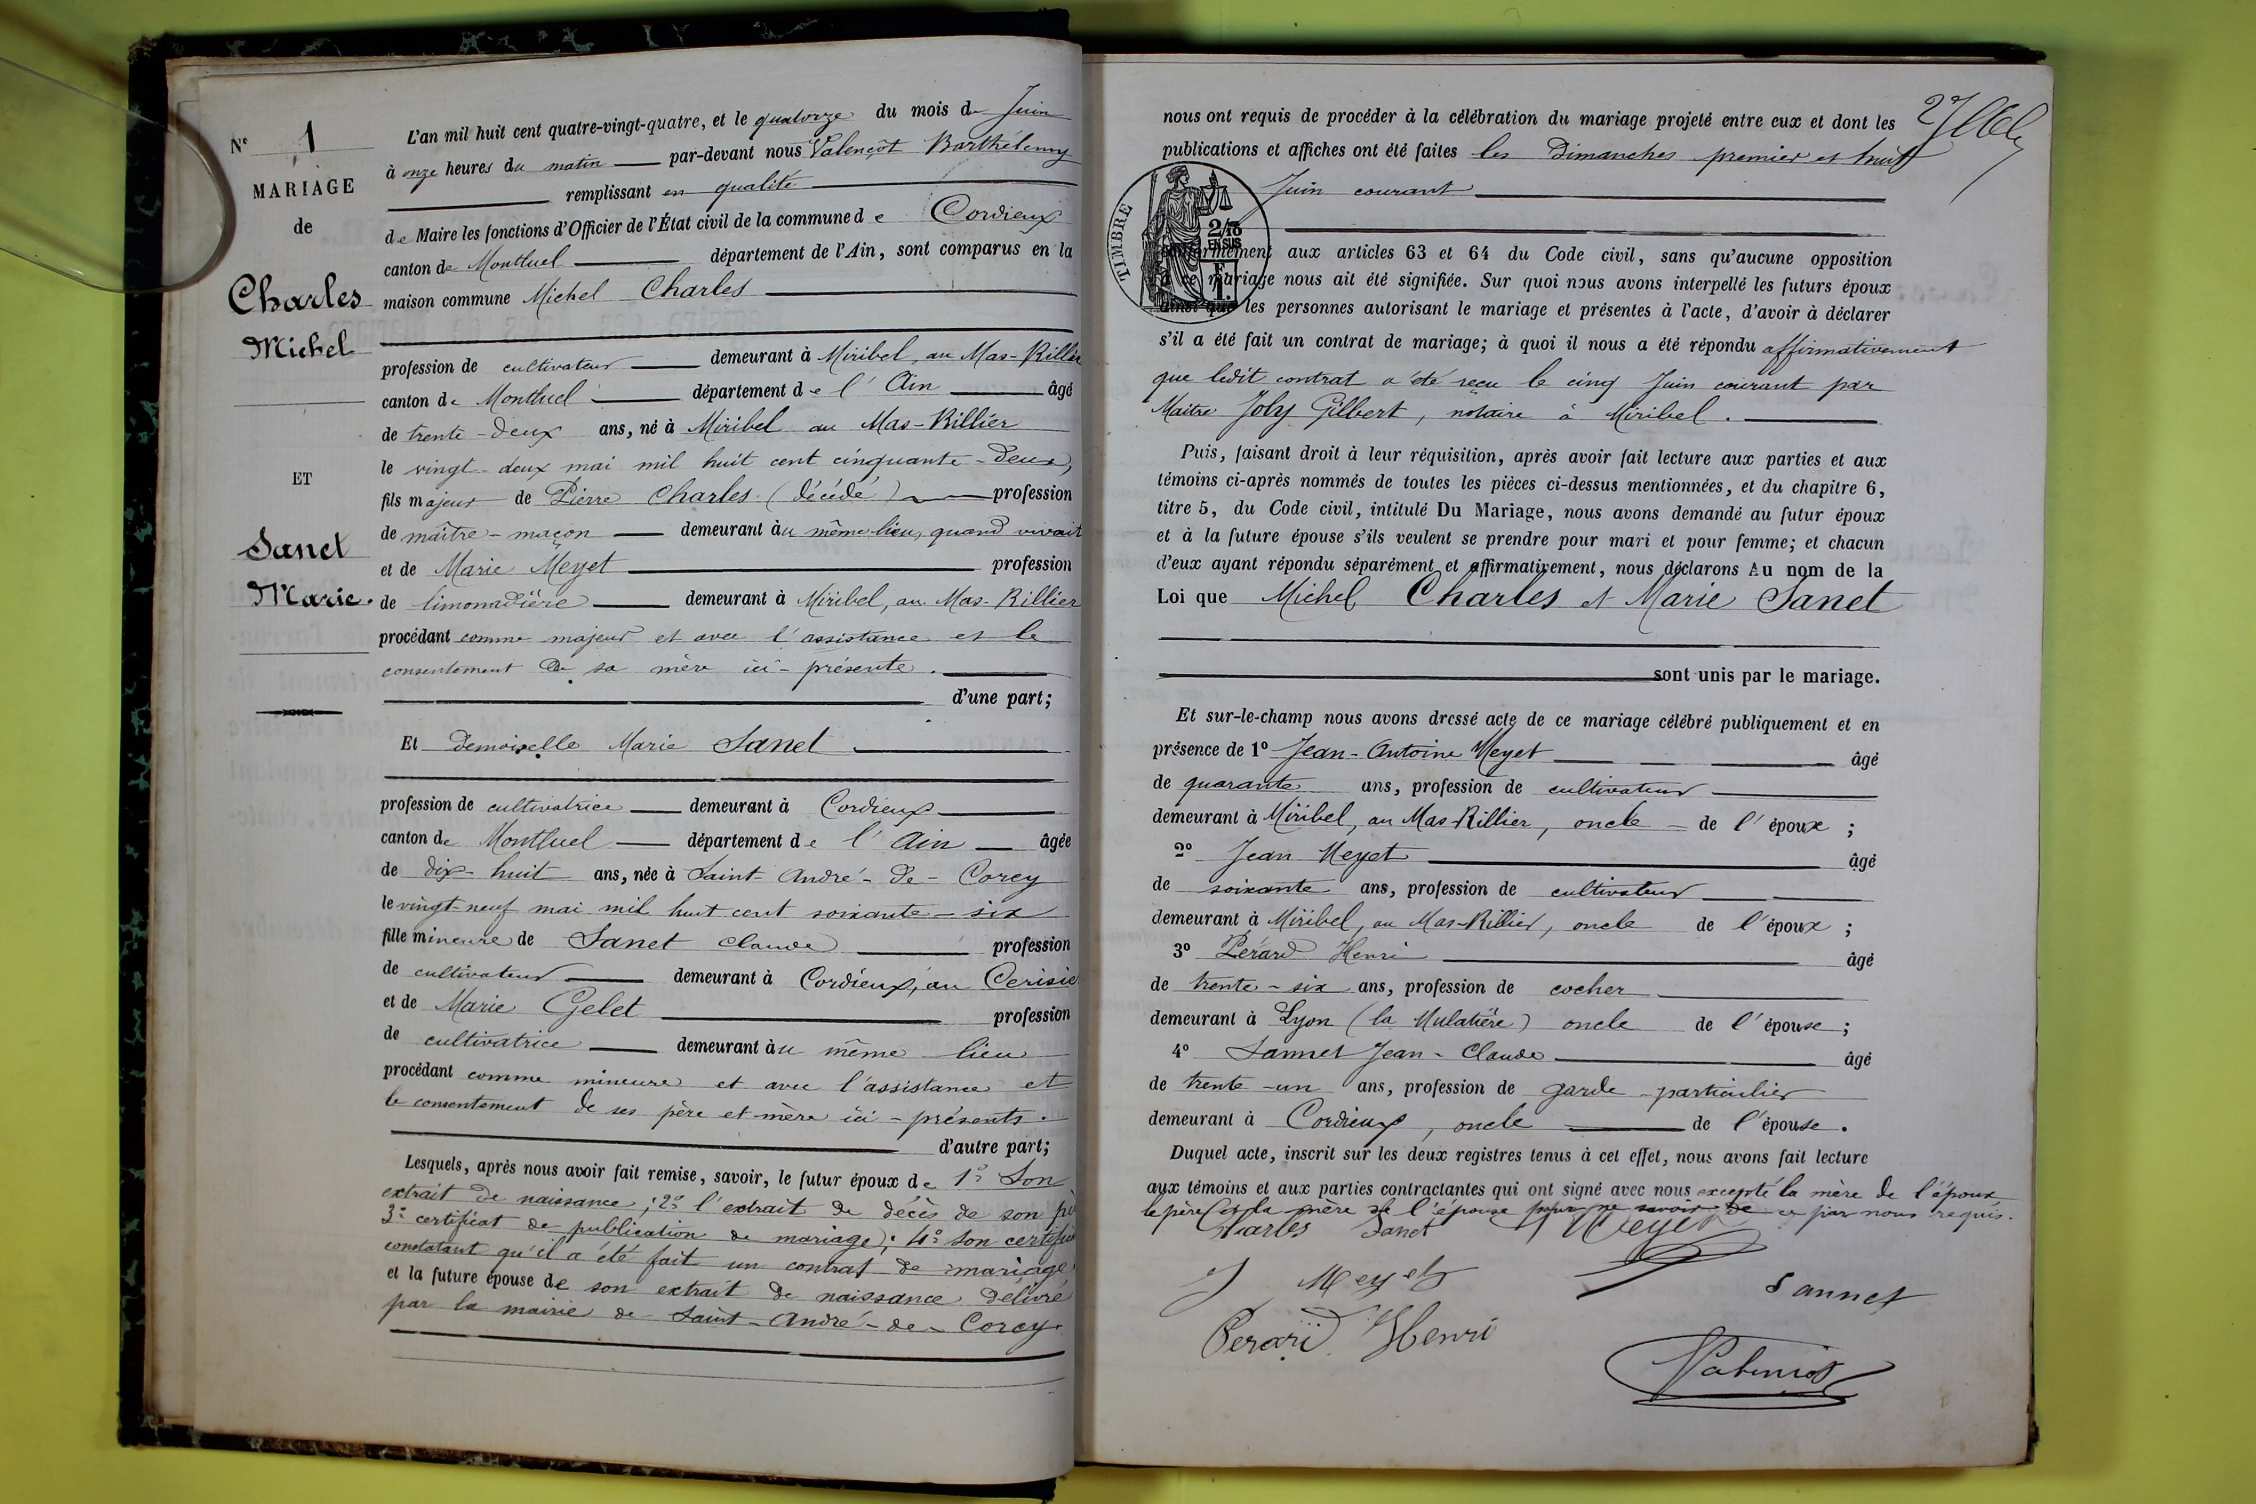 Nº 1
MARIAGE
de
Charles
Michel
ET
Sanet
Marie.
L'an mil huit cent quatre-vingt-quatre, et le quatorze du mois de Juin
à onze heures du matin par-devant nous Valençot Barthélemy
remplissant en qualité
de Maire les fonctions d'Officier de l'État civil de la commune de Cordieux
canton de Montluel département de l'Ain, sont comparus en la
maison commune Michel Charles
profession de cultivateur demeurant à Miribel, au Mas-Rillier
canton de Montluel département de l'Ain âgé
de trente-deux ans, né à Miribel au Mas-Rillier
le vingt-deux mai mil huit cent cinquante-deux,
fils majeur de Pierre Charles (décédé) profession
de maître-maçon demeurant au même lieu, quand vivait
et de Marie Meyet profession
de limonadière demeurant à Miribel, au Mas-Rillier
procédant comme majeur et avec l'assistance et le
consentement de sa mère ici-présente.
d'une part;
Et Demoiselle Marie Sanet
profession de cultivatrice demeurant à Cordieux
canton de Montluel département de l'Ain âgée
de dix-huit ans, née à Saint-André-de-Corcy
le vingt-neuf mai mil huit cent soixante-six
fille mineure de Sanet Claude profession
de cultivateur demeurant à Cordieux, au Cerisie
et de Marie Gelet profession
de cultivatrice demeurant au même lieu
procédant comme mineure et avec l'assistance et
le consentement de ses père et mère ici-présents.
d'autre part;
Lesquels, après nous avoir fait remise, savoir, le futur époux de 1º Son
extrait de naissance; 2º l'extrait de décès de son pè
3º certificat de publication de mariage); 4º son certific
constatant qu'il a été fait un contrat de mariage
et la future épouse de son extrait de naissance délivré
par la mairie de Saint-André-de-Corcy.
nous ont requis de procéder à la célébration du mariage projeté entre eux et dont les
publications et affiches ont été faites les Dimanches premier et huit
Juin courant
TIMBRE
2/10
EN SUS
conformément aux articles 63 et 64 du Code civil, sans qu'aucune opposition
à ce mariage nous ait été signifiée. Sur quoi nous avons interpellé les futurs époux
ainsi que les personnes autorisant le mariage et présentes à l'acte, d'avoir à déclarer
s'il a été fait un contrat de mariage; à quoi il nous a été répondu affirmativement
que ledit contrat a été reçu le cinq Juin courant par
Maître Joly Gilbert, notaire à Miribel.
Puis, faisant droit à leur réquisition, après avoir fait lecture aux parties et aux
témoins ci-après nommés de toutes les pièces ci-dessus mentionnées, et du chapitre 6,
titre 5, du Code civil, intitulé Du Mariage, nous avons demandé au futur époux
et à la future épouse s'ils veulent se prendre pour mari et pour femme; et chacun
d'eux ayant répondu séparément et affirmativement, nous déclarons Au nom de la
Loi que Michel Charles et Marie Sanet
sont unis par le mariage.
Et sur-le-champ nous avons dressé acte de ce mariage célébré publiquement et en
présence de 1º Jean-Antoine Meyet âgé
de quarante ans, profession de cultivateur
demeurant à Miribel, au Mas-Rillier, oncle de l'époux;
2º Jean Meyet âgé
de soixante ans, profession de cultivateur
demeurant à Miribel, au Mas-Rillier, oncle de l'époux;
3º Pérard Henri âgé
de trente-six ans, profession de cocher
demeurant à Lyon (la Mulatière) oncle de l'épouse;
4º Sannet Jean-Claude âgé
de trente-un ans, profession de garde-particulier
demeurant à Cordieux, oncle de l'épouse.
Duquel acte, inscrit sur les deux registres tenus à cet effet, nous avons fait lecture
aux témoins et aux parties contractantes qui ont signé avec nous excepté la mère de l'époux
le père et la mère de l'épouse pour ne savoir de ce par nous requis.
Charles Sanet Meyet
J Meyet
Sannet
Perard Henri
Valençot